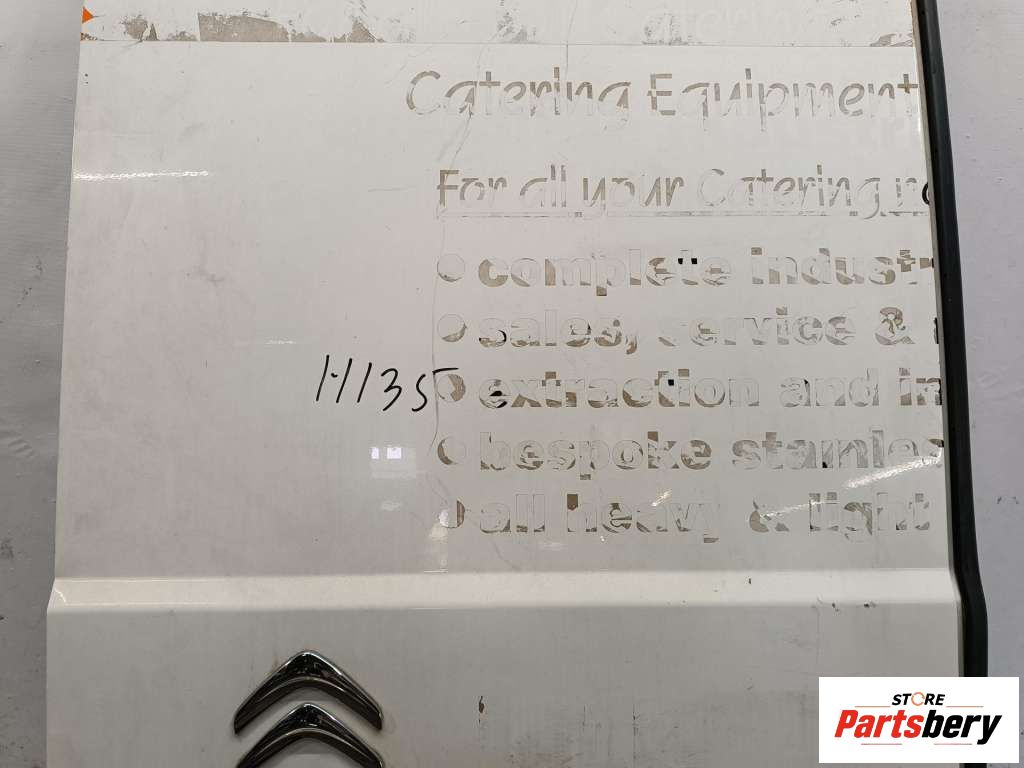 Catering Equipment
For all your Catering
complete
sales, service &
H135
extraction and
bespoke
all heavy & light
STORE
Partsbery